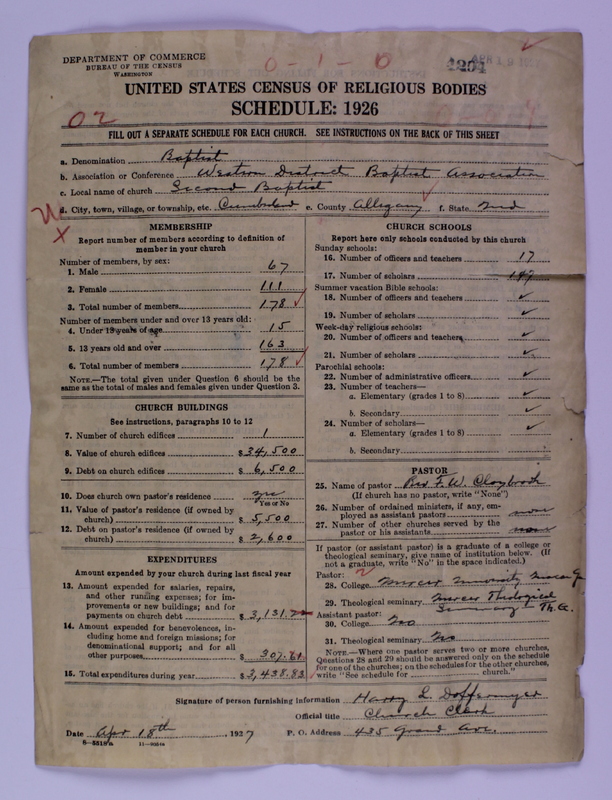 DEPARTMENT OF COMMERCE
BUREAU OF THE CENSUS
WASHINGTON
0-1-0
4294
APR 19
UNITED STATES CENSUS OF RELIGIOUS BODIES
SCHEDULE: 1926
02
FILL OUT A SEPARATE SCHEDULE FOR EACH CHURCH. SEE INSTRUCTIONS ON THE BACK OF THIS SHEET
a. Denomination Baptist
b. Association or Conference Western District Baptist Association
c. Local name of church Second Baptist
d. City, town, village, or township, etc. Cumberland e. County Allegany f. State Md
MEMBERSHIP
Report number of members according to definition of
member in your church
Number of members, by sex:
1. Male 67
2. Female 111
3. Total number of members 178
Number of members under and over 13 years old:
4. Under 13 years of age 15
5. 13 years old and over 163
6. Total number of members 178
NOTE.—The total given under Question 6 should be the
same as the total of males and females given under Question 3.
CHURCH BUILDINGS
See instructions, paragraphs 10 to 12
7. Number of church edifices 1
8. Value of church edifices $ 34,500
9. Debt on church edifices $ 6,500
10. Does church own pastor's residence yes
Yes or No
11. Value of pastor's residence (if owned by
church) $ 5,500
12. Debt on pastor's residence (if owned by
church) $ 2,600
EXPENDITURES
Amount expended by your church during last fiscal year
13. Amount expended for salaries, repairs,
and other running expenses; for im-
provements or new buildings; and for
payments on church debt $ 3,131.
14. Amount expended for benevolences, in-
cluding home and foreign missions; for
denominational support; and for all
other purposes $ 307.
15. Total expenditures during year $ 3,438.83
CHURCH SCHOOLS
Report here only schools conducted by this church
Sunday schools:
16. Number of officers and teachers 17
17. Number of scholars 147
Summer vacation Bible schools:
18. Number of officers and teachers ✓
19. Number of scholars ✓
Week-day religious schools:
20. Number of officers and teachers ✓
21. Number of scholars ✓
Parochial schools:
22. Number of administrative officers ✓
23. Number of teachers—
a. Elementary (grades 1 to 8) ✓
b. Secondary ✓
24. Number of scholars—
a. Elementary (grades 1 to 8) ✓
b. Secondary
PASTOR
25. Name of pastor Rev F. W. Claybrook
(If church has no pastor, write "None")
26. Number of ordained ministers, if any, em-
ployed as assistant pastors none
27. Number of other churches served by the
pastor or his assistants none
If pastor (or assistant pastor) is a graduate of a college or
theological seminary, give name of institution below. (If
not a graduate, write "No" in the space indicated.)
Pastor:
28. College Mercer University Macon Ga
29. Theological seminary Mercer Theological
Seminary
Assistant pastor:
30. College No
31. Theological seminary No
NOTE.—Where one pastor serves two or more churches,
Questions 28 and 29 should be answered only on the schedule
for one of the churches; on the schedules for the other churches,
write "See schedule for church."
Signature of person furnishing information Harry L. Doffermyer
Official title Church Clerk
Date Apr 18th, 1927 P. O. Address 435 Grand Ave.